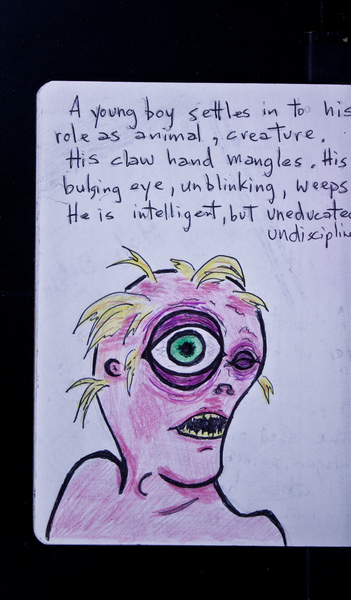 A young boy settles in to his
role as animal, creature.
His claw hand mangles. His
bulging eye, unblinking, weeps
He is intelligent, but uneducated
undiscipline